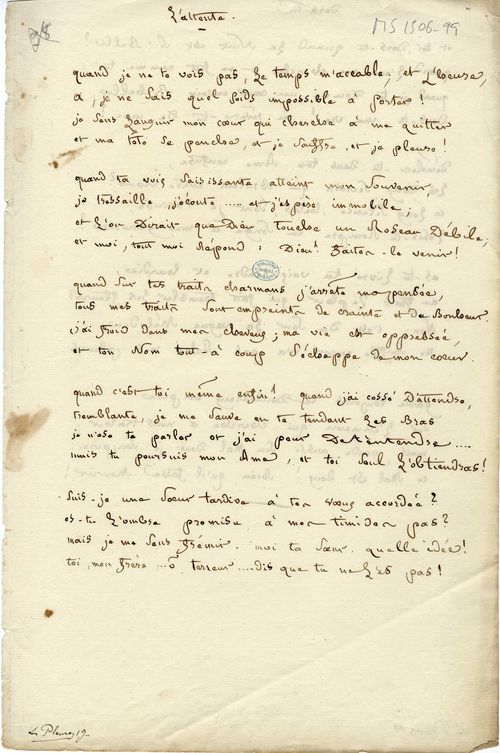 L'attente.
MS 1506-99
quand je ne te vois pas, Le temps m'accable, et L'heure,
a, je ne sais quel poids impossible à porter!
je sens Languir mon cœur qui cherche à me quitter
et ma tête se penche, et je souffre, et je pleure!
quand ta voix saisissante atteint mon souvenir,
je tressaille, j'écoute .... et j'espère immobile,
et L'on Dirait que Dieu touche un Roseau Débile,
et moi, tout moi Répond : Dieu! Faites-le venir!
quand sur tes traits charmans j'arrête ma pensée,
tous mes traits sont empreints de crainte et de Bonheur.
j'ai froid dans mes cheveux ; ma vie est oppressée,
et ton Nom tout-à coup s'échappe de mon cœur.
quand c'est toi même enfin! quand j'ai cessé D'attendre,
tremblante, je me sauve en te tendant Les Bras
je n'ose te parler et j'ai peur De t'entendre ....
mais tu poursuis mon Ame, et toi seul L'obtiendras!
suis-je une sœur tardive à tes vœux accordée?
es-tu L'ombre promise à mes timides pas?
mais je me sens frémir. moi ta sœur. quelle idée!
toi, mon frère ...ô terreur ....dis que tu ne L'es pas!